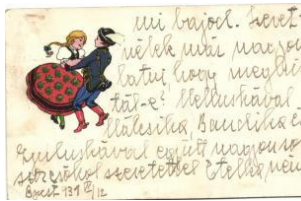 mi bajod. Szeret
nélek már nagyon
látni, hogy meghíz
tál-e? Melluskával
Málcsika, Bandika és
együtt nagyon so
szor csókol szeretettel Etelka néni
Buest 931 IV/12